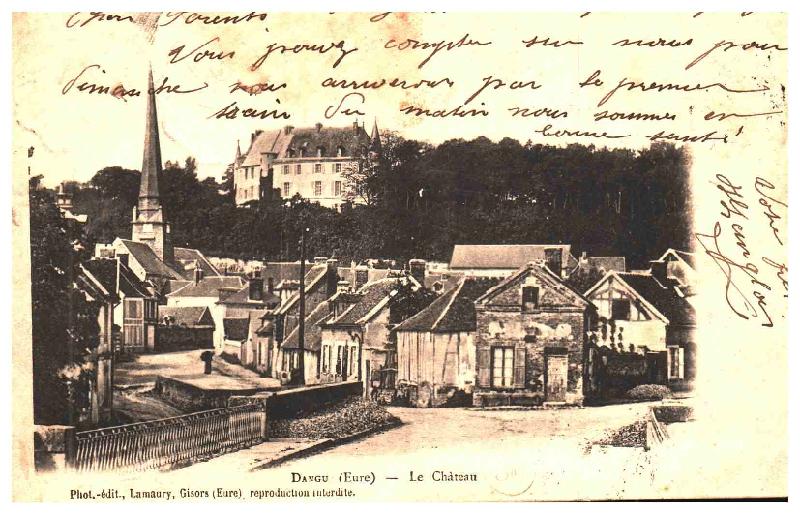 Chers Parents
Vous pouvez compter sur nous pour
dimanche nous arriverons par le premier
train du matin nous sommes en
bonne santé
Votre fils
Dangu (Eure) — Le Château
Phot.-édit., Lamaury, Gisors (Eure), reproduction interdite.